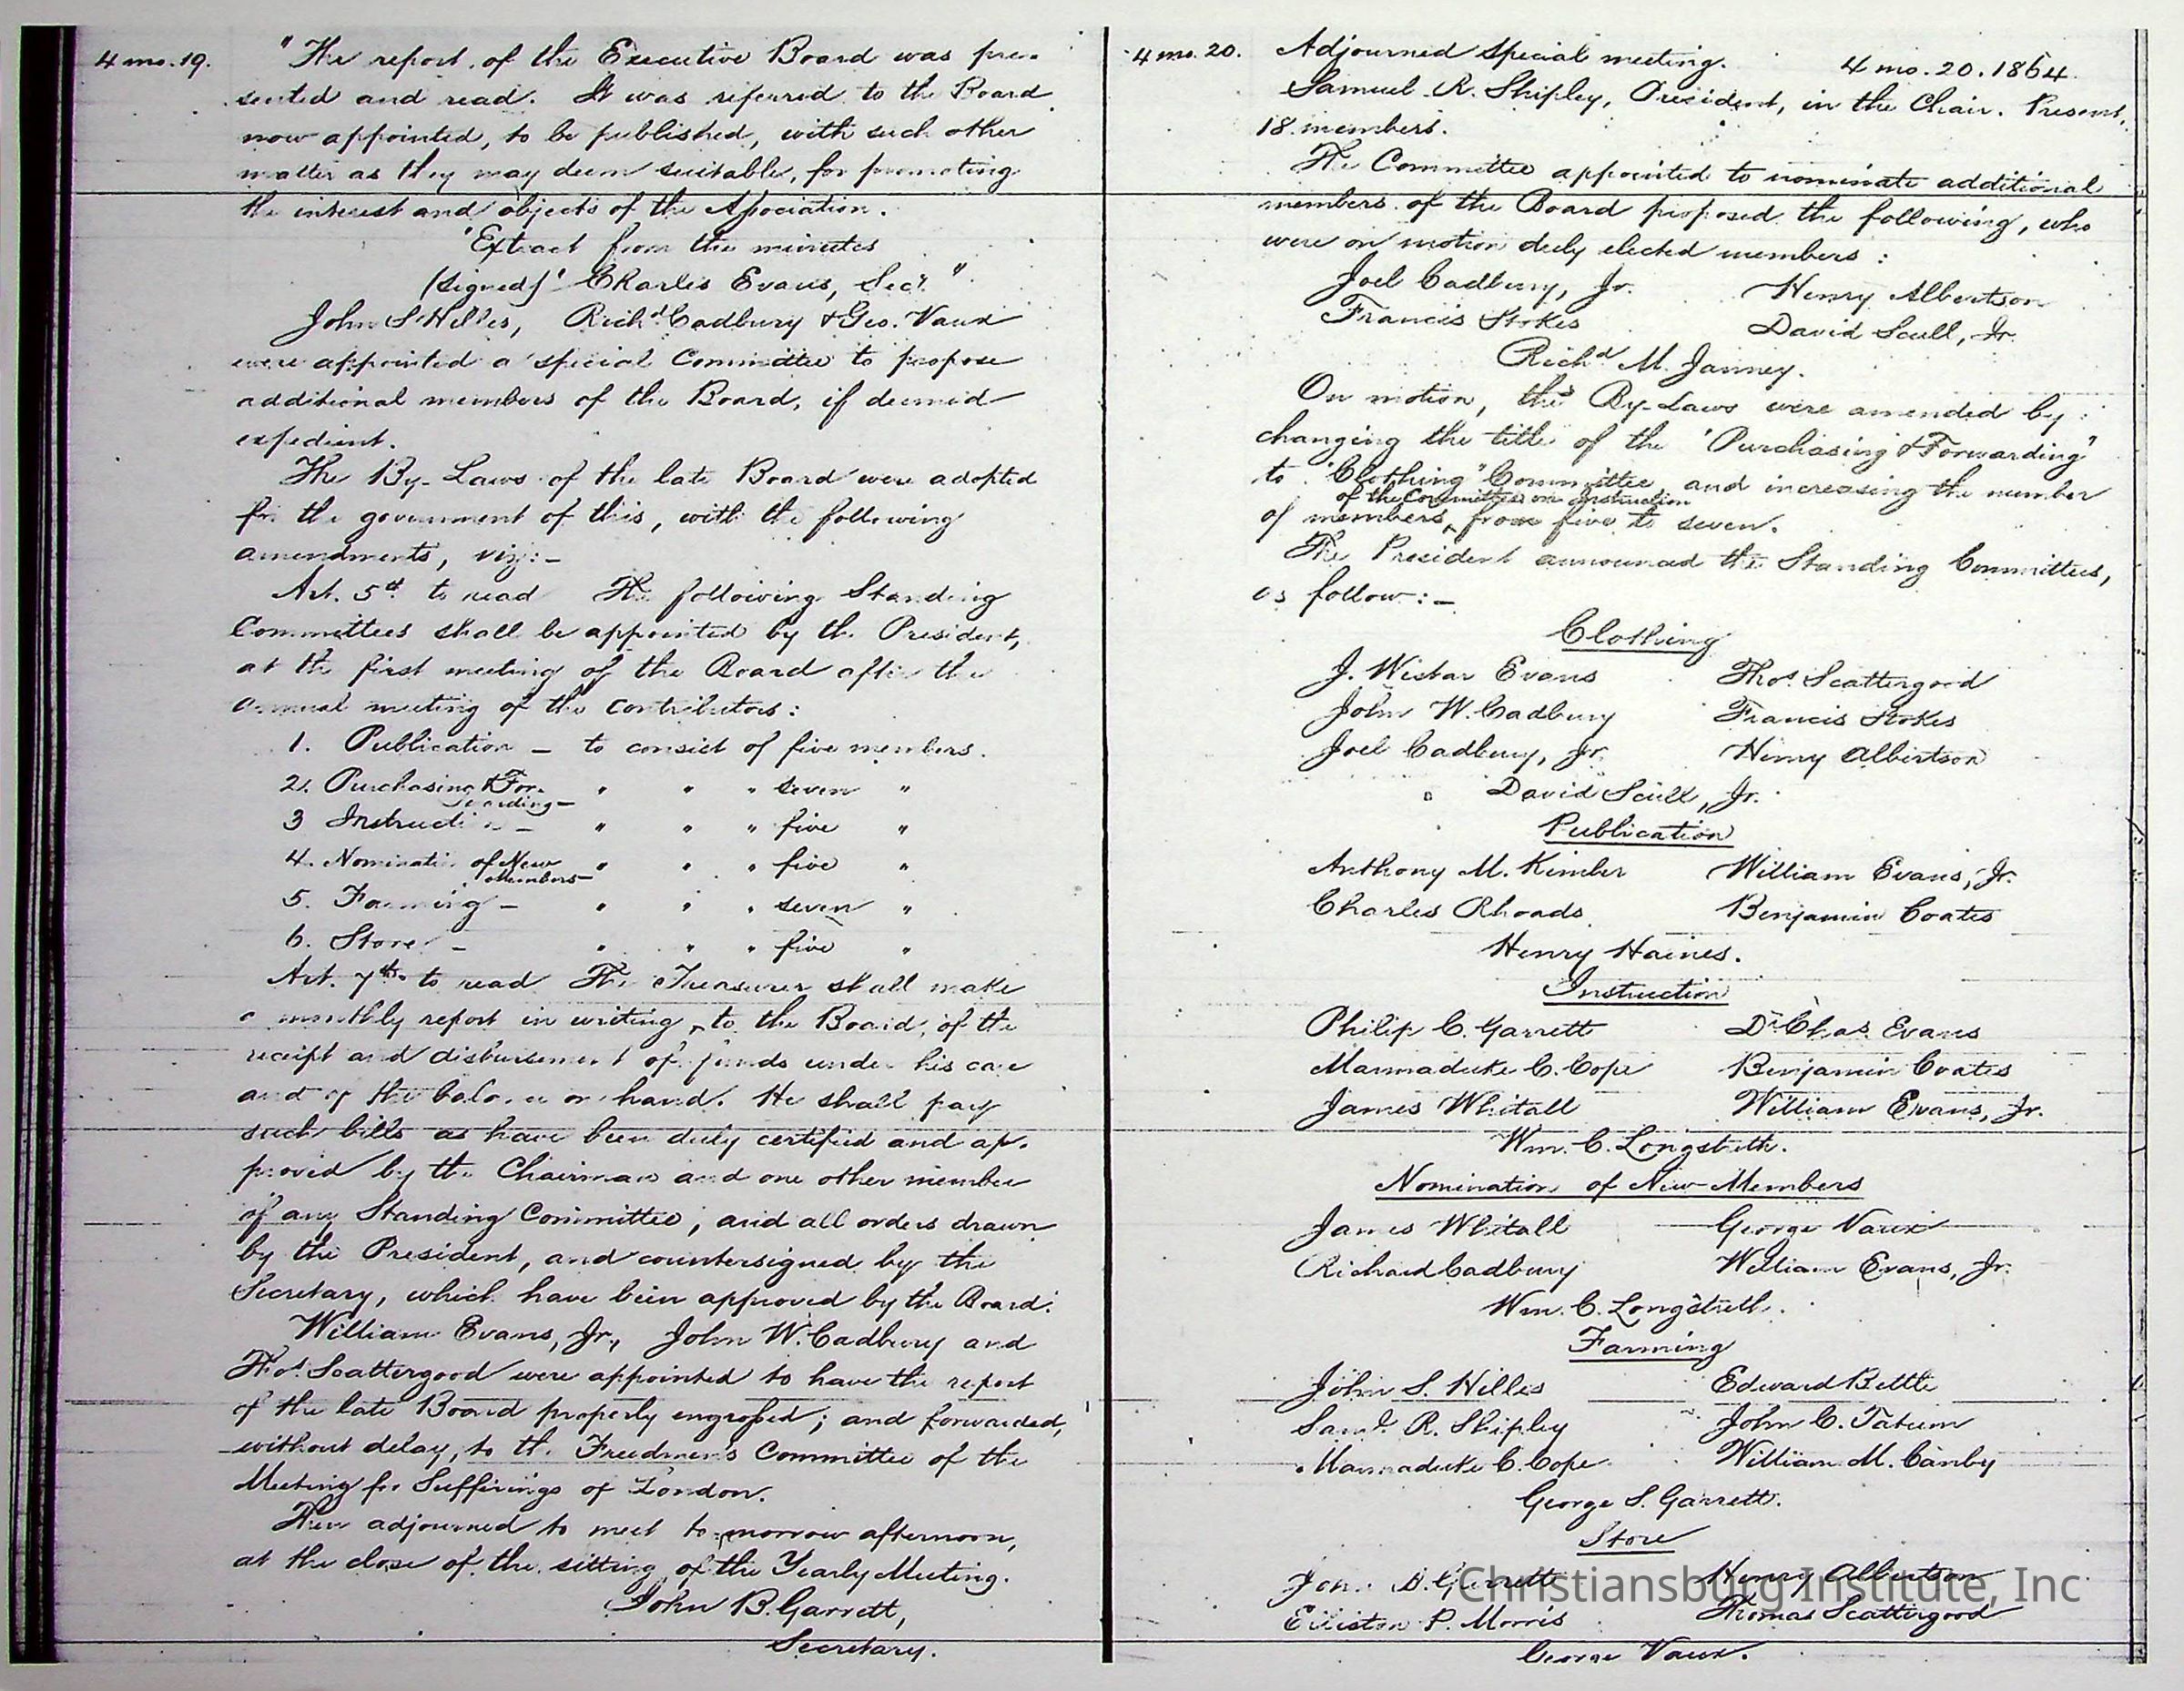 4 mo. 19.
"The report of the Executive Board was pre-
sented and read. It was referred to the Board
now appointed, to be published, with such other
matter as they may deem suitable, for promoting
the interest and objects of the Association.
"Extract from the minutes
(signed) "Charles Evans, Sec'y."
John S. Hilles, Rich'd Cadbury & Geo. Vaux
were appointed a special Committee to propose
additional members of the Board, if deemed
expedient.
The By-Laws of the late Board were adopted
for the government of this, with the following
amendments, viz:-
Art. 5th to read The following Standing
Committees shall be appointed by the President,
at the first meeting of the Board after the
annual meeting of the contributors:
1. Publication - to consist of five members.
2. Purchasing & For-
warding - " " " seven "
3 Instruction - " " " five "
4. Nominati of New
Members - " " " five "
5. Farming - " " " seven "
6. Store - " " " five "
Art. 7th to read The Treasurer shall make
a monthly report in writing, to the Board, of the
receipt and disbursement of funds under his care
and of the balance on hand. He shall pay
such bills as have been duly certified and ap-
proved by the Chairman and one other member
of any Standing Committee; and all orders drawn
by the President, and countersigned by the
Secretary, which have been approved by the Board.
William Evans, Jr., John W. Cadbury and
Thos. Scattergood were appointed to have the report
of the late Board properly engrossed; and forwarded,
without delay, to the Freedmen's Committee of the
Meeting for Sufferings of London.
Then adjourned to meet to-morrow afternoon,
at the close of the sitting of the Yearly Meeting.
John B. Garrett,
Secretary.
4 mo. 20.
Adjourned special meeting. 4 mo. 20. 1864.
Samuel R. Shipley, President, in the Chair. Present,
18 members.
The Committee appointed to nominate additional
members of the Board proposed the following, who
were on motion duly elected members:
Joel Cadbury, Jr. Henry Albertson
Francis Stokes David Scull, Jr.
Rich'd M. Janney.
On motion, the By-Laws were amended by
changing the title of the "Purchasing & Forwarding"
to "Clothing" Committee and increasing the number
of the Committee on Instruction
of members, from five to seven.
The President announced the Standing Committees,
as follow:-
Clothing
J. Wistar Evans Thos. Scattergood
John W. Cadbury Francis Stokes
Joel Cadbury, Jr. Henry Albertson
David Scull, Jr.
Publication
Anthony M. Kimber William Evans, Jr.
Charles Rhoads Benjamin Coates
Henry Haines.
Instruction
Philip C. Garrett Dr. Chas. Evans
Marmaduke C. Cope Benjamin Coates
James Whitall William Evans, Jr.
Wm. C. Longstreth.
Nomination of New Members
James Whitall George Vaux
Richard Cadbury William Evans, Jr.
Wm. C. Longstreth.
Farming
John S. Hilles Edward Bettle
Saml. R. Shipley John C. Tatum
Marmaduke C. Cope William M. Canby
George S. Garrett.
Store
Garrett Henry Albertson
Elliston P. Morris Thomas Scattergood
George Vaux.
Christiansburg Institute, Inc